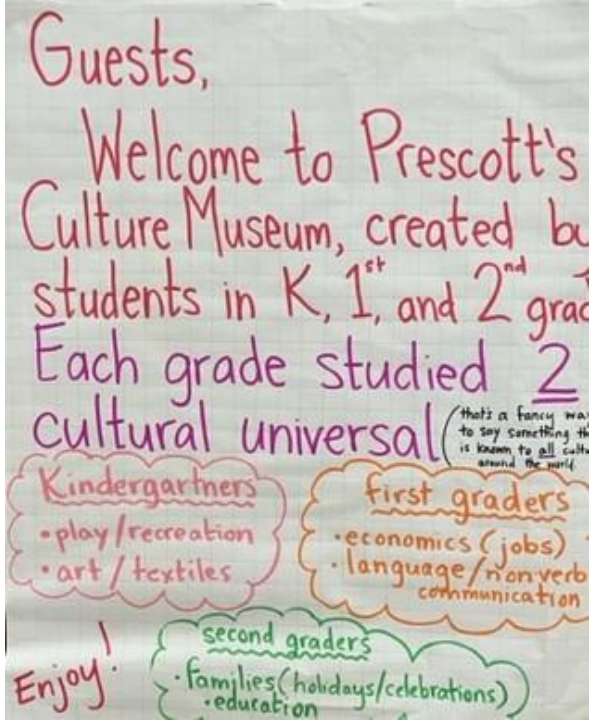 Guests,
Welcome to Prescott's
Culture Museum, created
students in K, 1st, and 2nd
Each grade studied 2
cultural universal
(that's a fancy
to say something
is known to all
around the world
Kindergartners
• play/recreation
• art/textiles
first graders
• economics (jobs)
• language/nonverb
communication
second graders
• families (holidays/celebrations)
• education
Enjoy!